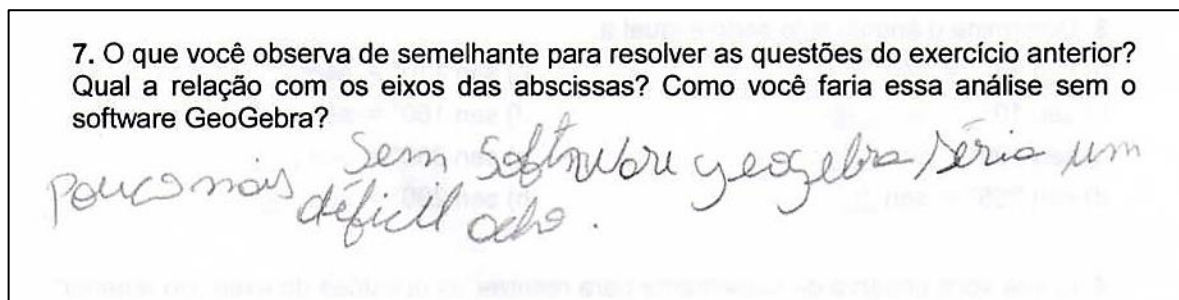 7. O que você observa de semelhante para resolver as questões do exercício anterior?
Qual a relação com os eixos das abscissas? Como você faria essa análise sem o
software GeoGebra?
Sem softwore geogebra séria um
pouco mais dificil acho.